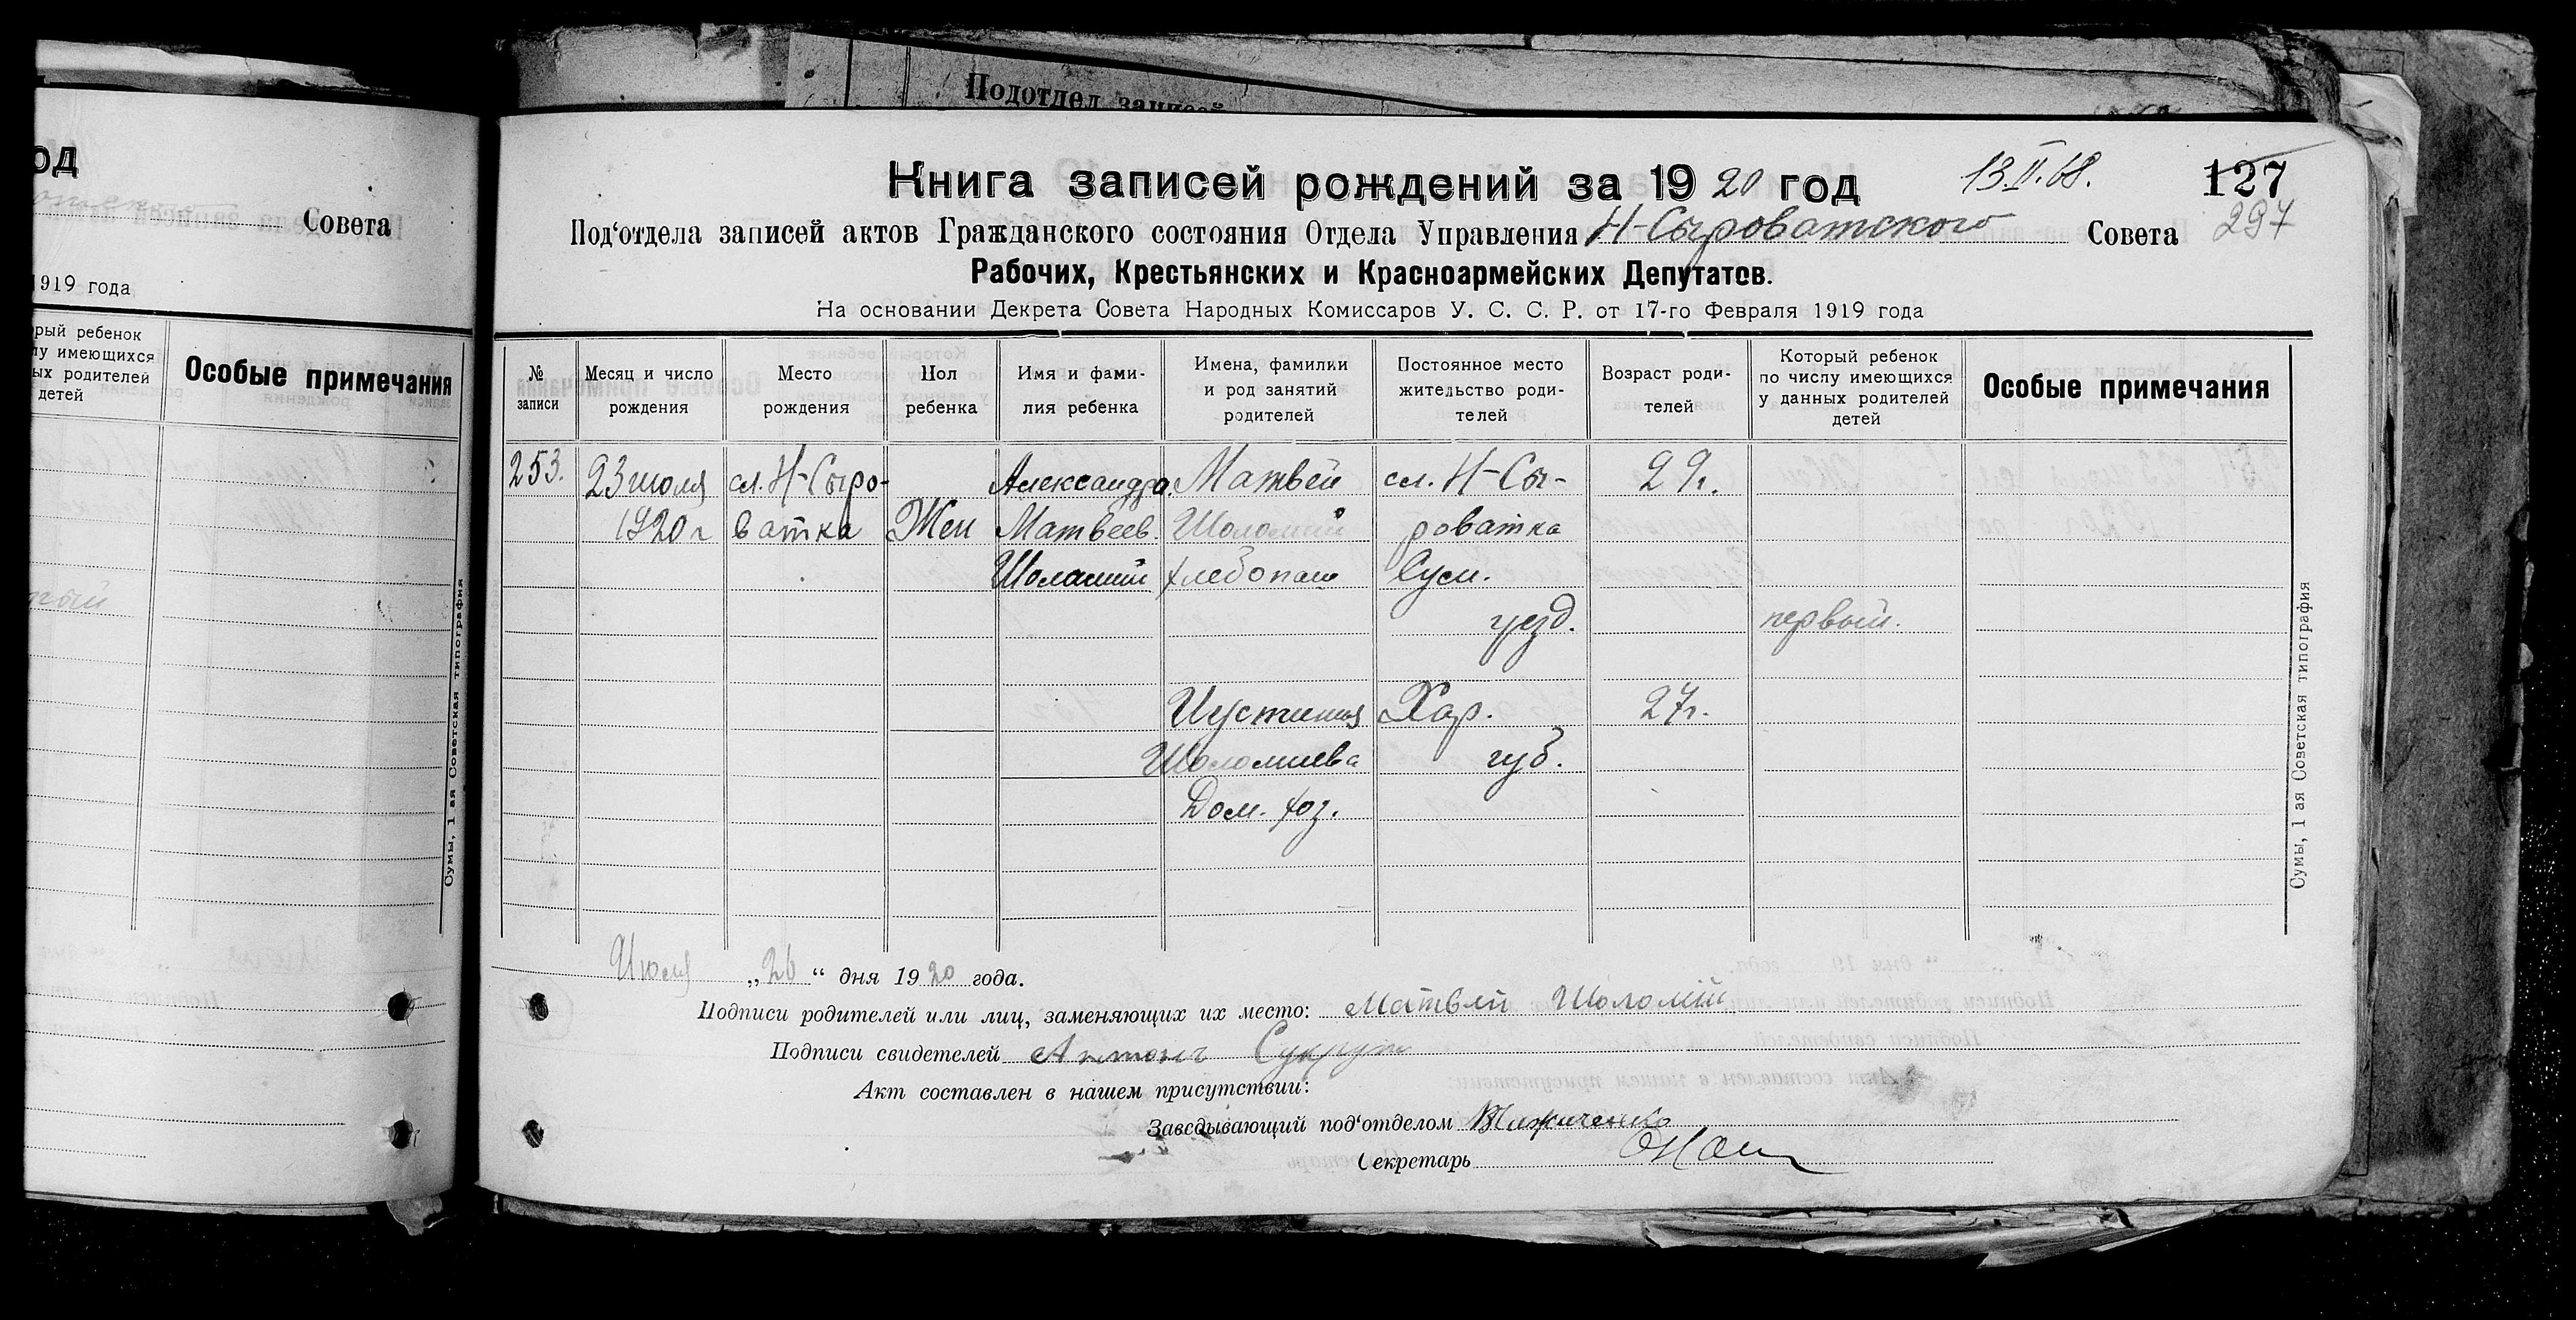 Подотдел записей
од
Совета
1919 года
рый ребенок
лу имеющихся
ых родителей
детей
Особые примечания
Сумы, 1 ая Советская типография
Книга записей рождений за 1920 год
13.II.68.
127
297
Под‘отдела записей актов Гражданского состояния Отдела Управления Н-Сыроватского Совета
Рабочих, Крестьянских и Красноармейских Депутатов.
На основании Декрета Совета Народных Комиссаров У. С. С. Р. от 17-го Февраля 1919 года
№ записи
Месяц и число рождения
Место рождения
Пол ребенка
Имя и фами-лия ребенка
Имена, фамилии и род занятий родителей
Постоянное место жительство роди-телей
Возраст роди-телей
Который ребенок по числу имеющихся у данных родителей детей
Особые примечания
253. 23 июля сл. Н-Сыро- Александра Матвей сл. Н-Сы- 29г.
1920 г ватка Жен Матвеев. Шоломий роватка
Шоломий хлебопаш Сум.
уезд. первый.
Иустиния Хар. 27г.
Шоломиева губ.
Дом. хоз.
Июля „26“ дня 1920 года.
Подписи родителей или лиц, заменяющих их место: Матвей Шоломій
Подписи свидетелей Антонъ
Акт составлен в нашем присутствии:
Заведывающий под‘отделом
Секретарь
Сумы, 1 ая Советская типография